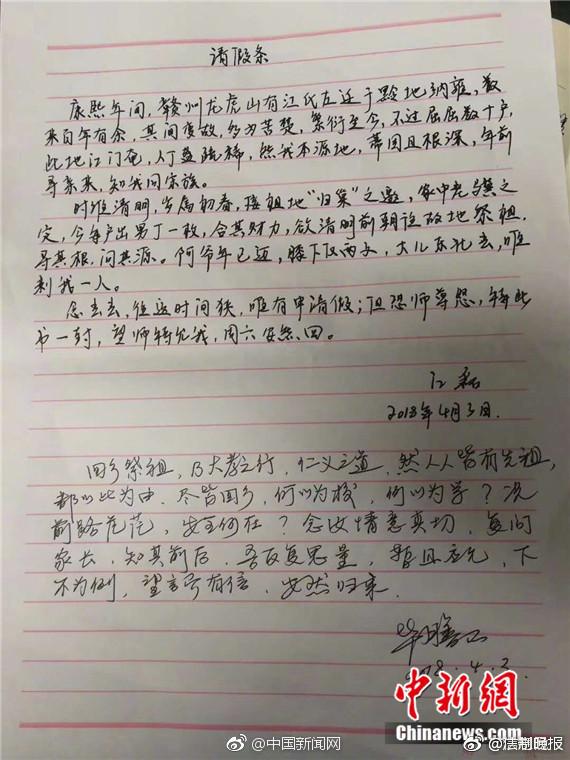 请假条
康熙年间，赣州龙虎山有江氏左迁于黔地纳雍，数
来百年有余，其间变故，多为苦楚，繁衍至今，不过屈屈数十户，
此地江门奄，人丁益疏稀，然我本源地，蒂固且根深，年前
寻亲来，知我同宗族。
时惟清明，岁属初春，接祖地“归巢”之邀，家中老骥之
定，今每户出男丁一枚，合其财力，欲清明前朝谊故地祭祖，
寻其根，问其源。阿爷年已迈，膝下仅两丈，大儿东北去，唯
剩我一人。
念去去，往返时间狭，唯有申请假；但恐师尊怒，特此
书一封，望师特允我，周六安然回。
江磊
2018年4月3日.
回乡祭祖，乃大孝之行，仁义之道，然人人皆有先祖，
都以此为由，尽皆回乡，何以为校，何以为学？况
前路茫茫，安可何在？念汝情意真切，复问
家长，知其前后，吾反复思量，暂且应允，下
不为例，望言号有信，安然归来.
18.4.3.
中新网
Chinanews.com
@中国新闻网
@法制晚报